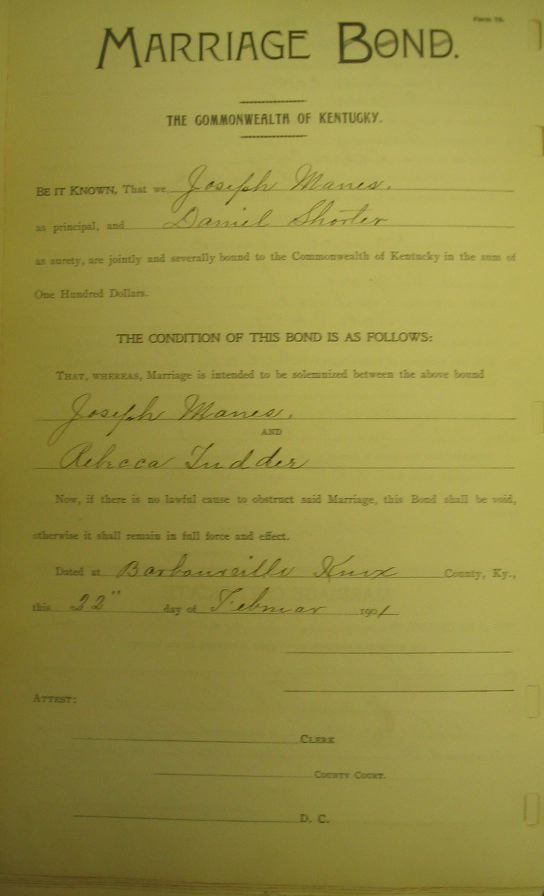 Form 78.
MARRIAGE BOND.
THE COMMONWEALTH OF KENTUCKY.
BE IT KNOWN, That we, Joseph Manes.
as principal, and Daniel Shorter
as surety, are jointly and severally bound to the Commonwealth of Kentucky in the sum of
One Hundred Dollars.
THE CONDITION OF THIS BOND IS AS FOLLOWS:
THAT, WHEREAS, Marriage is intended to be solemnized between the above bound
Joseph Manes.
AND
Rebecca Tudder
Now, if there is no lawful cause to obstruct said Marriage, this Bond shall be void,
otherwise it shall remain in full force and effect.
Dated at Barbourville Knox County, Ky.,
this 22" day of Februar 1901
ATTEST:
CLERK
COUNTY COURT.
D. C.